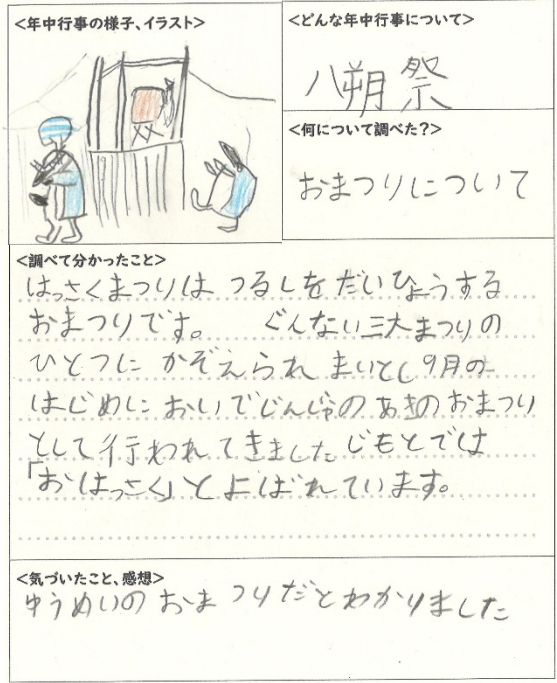 <年中行事の様子、イラスト>
<どんな年中行事について>
八朔祭
<何について調べた?>
おまつりについて
<調べて分かったこと>
はっさくまつりは つるしを だいひょうする
おまつりです。 ぐんない三大まつりの
ひとつに かぞえられ まいとし9月の
はじめに おいでじんじゃの あきの おまつり
として 行われてきました じもとでは
「おはっさく」と よばれています。
<気づいたこと、感想>
ゆうめいの おまつりだと わかりました